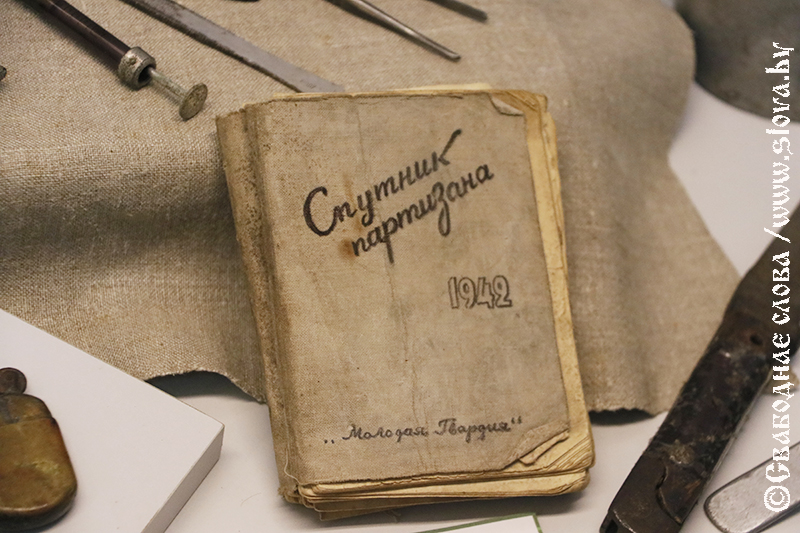 Спутник
партизана
1942
„Молодая Гвардия“
©Свабоднае слова /www.slova.by